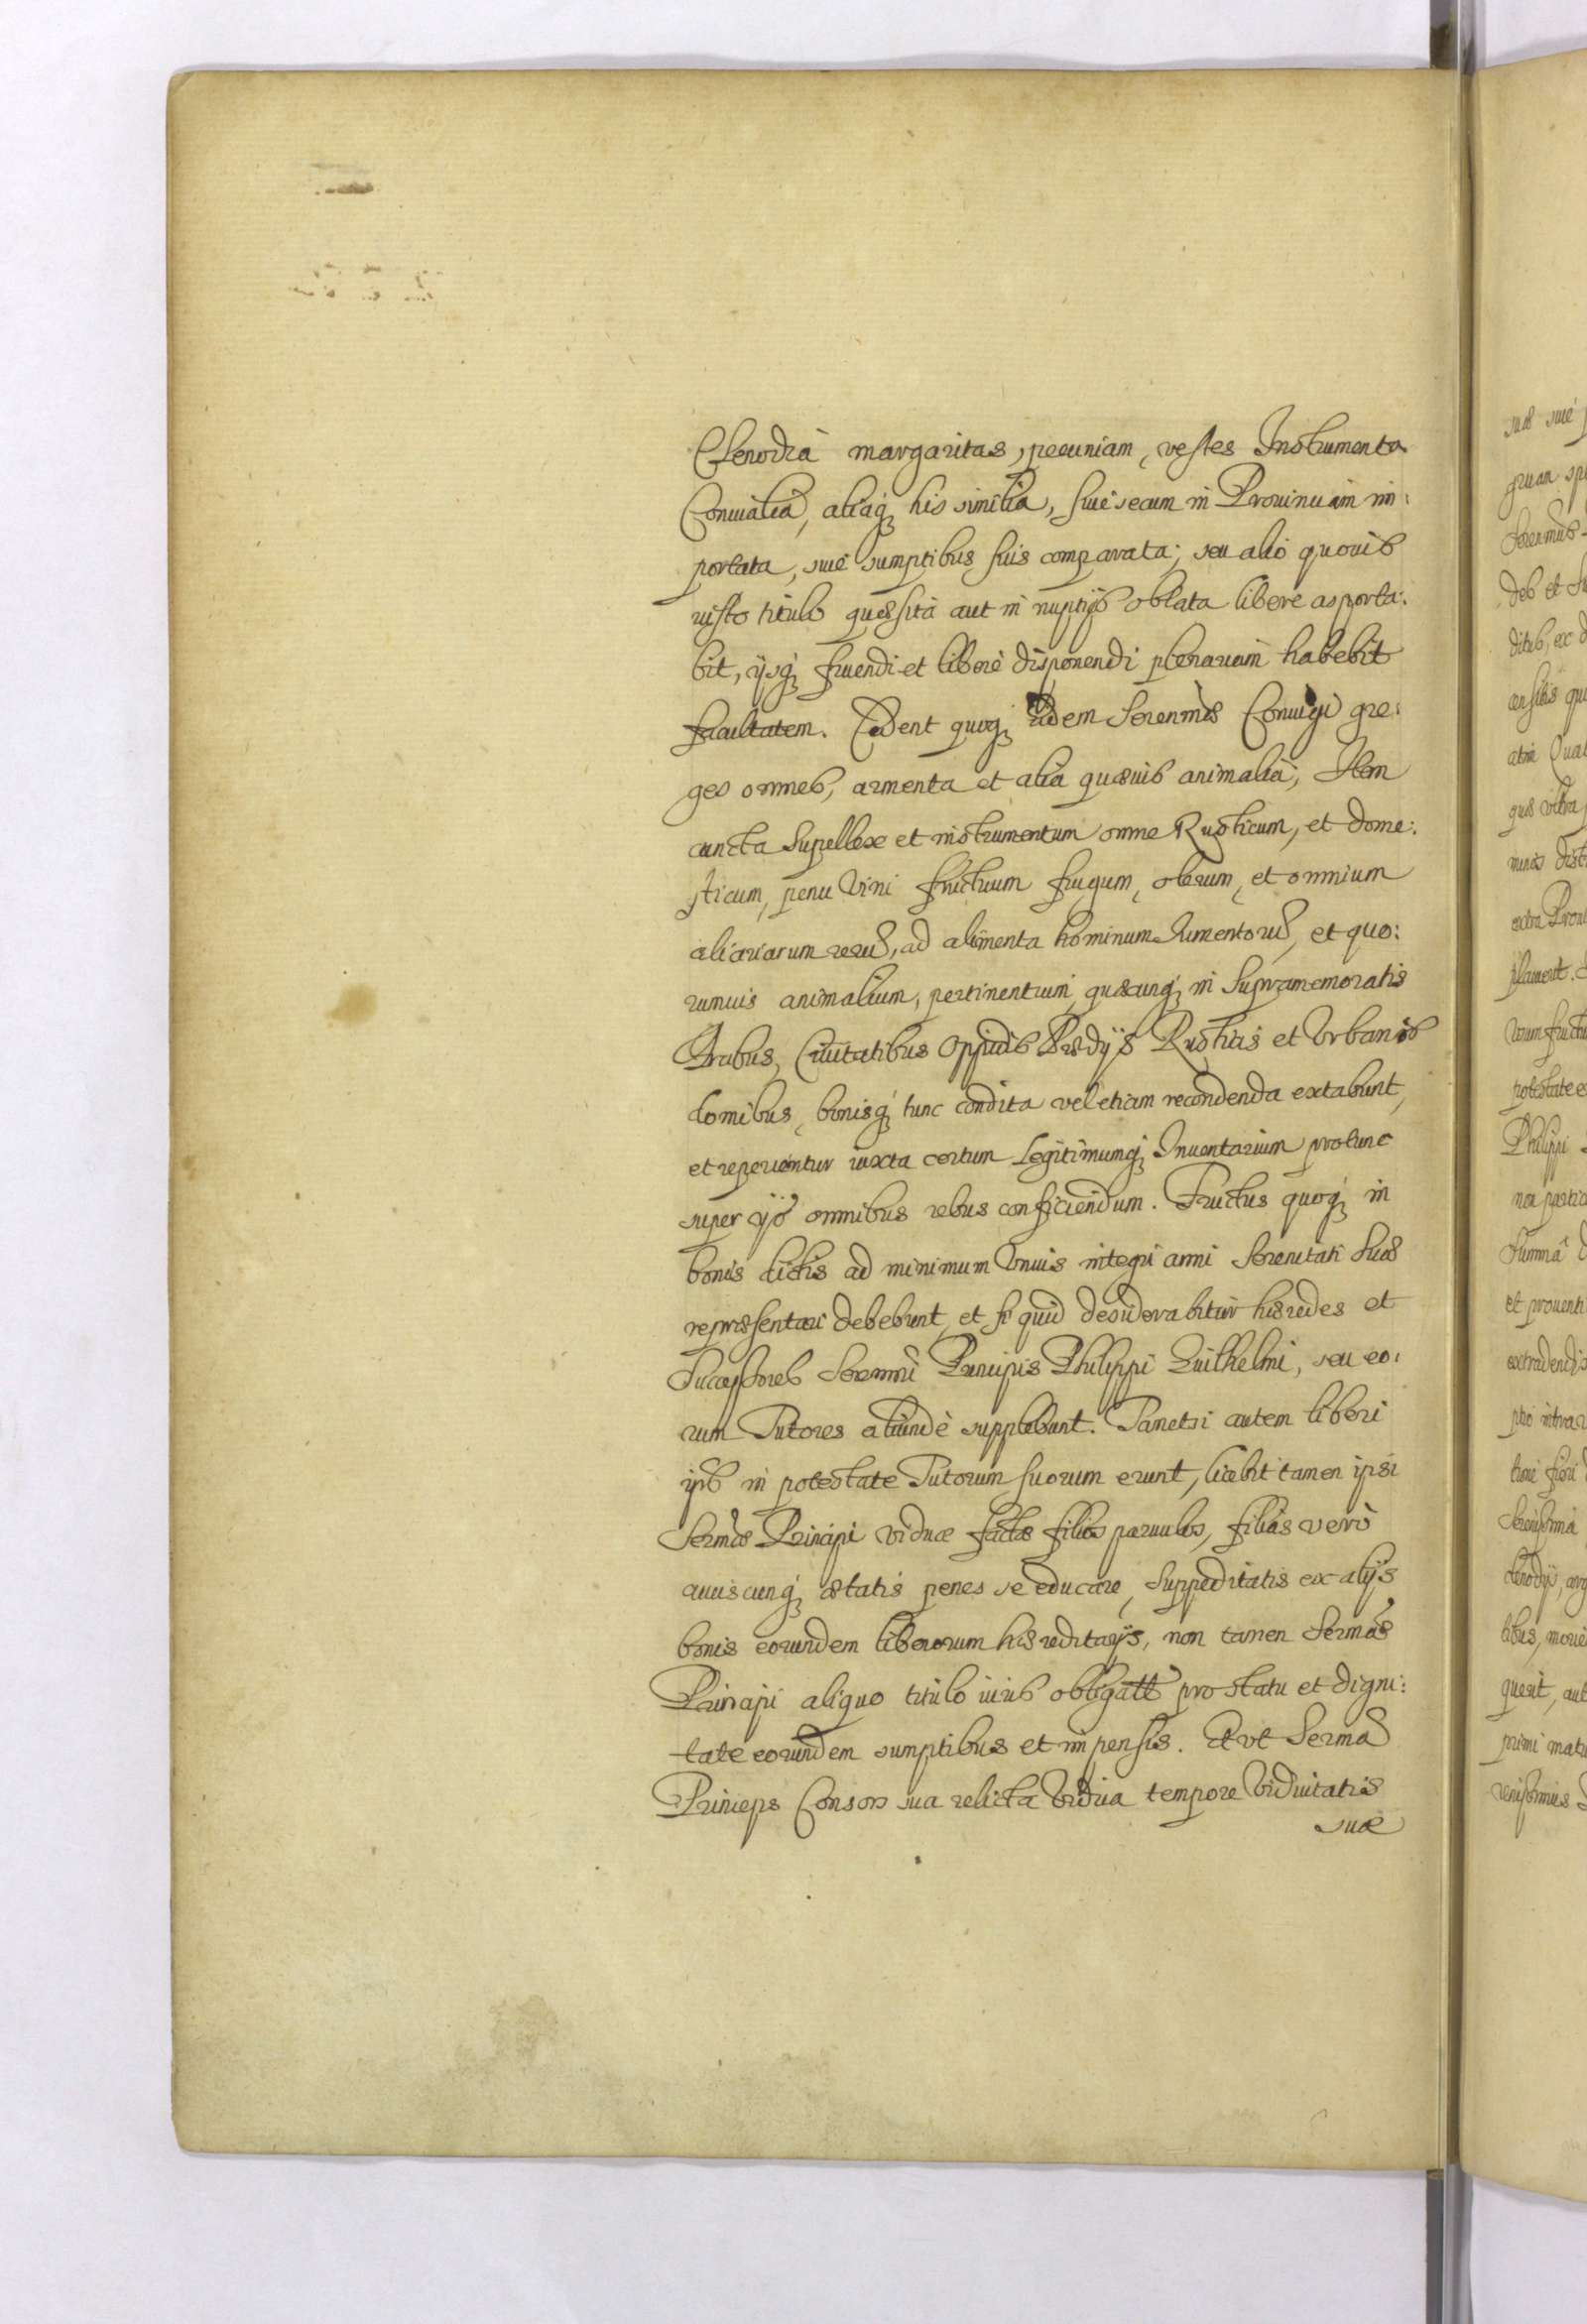 Clenodia margaritas, pecuniam, vestes Instrumenta
Conuialia, aliaq₃ his similia, siue secum in Prouinciam im:
portata, siue sumptibus suis comparata; seu alio quouis
iusto titulo quæsita aut in nuptijs oblata libere asporta:
bit, ijsq₃ fruendi et liberè disponendi plenariam habebit
facultatem. Cedent quoq₃ eidem Serenmæ Coniugi gre:
ges omnes, armenta et alia quæuis animalia, Item
cuncta Supellex et instrumentum omne Rusticum, et dome:
sticum, penu Vini fructuum frugum, olerum, et omnium
aliarum rerū, ad alimenta hominum Jumentorū, et quo:
rumuis animalium, pertinentium, quæcunq₃ in Supramemoratis
Arcibus, Ciuitatibus Oppidis Prædijs Rusticis et Vrbanis
domibus, bonisq₃ tunc condita vel etiam recondenda extabunt,
et reperientur iuxta certum Legitimumq₃ Inuentarium protunc
super ijs omnibus rebus conficiendum. Fructus quoq₃ in
bonis dictis ad minimum Vnius integri anni Serenitati Suæ
repræsentari debebunt, et si quid desiderabitur hæredes et
Successores Serenmi Principis Philippi Guilhelmi, seu eo:
rum Tutores aliundè supplebunt. Tametsi autem liberi
ipsi in potestate Tutorum suorum erunt, licebit tamen ipsi
Sermæ Principi viduæ factæ filios paruulos, filias verò
cuiuscunq₃ ætatis penes se educare, suppeditatis ex alijs
bonis eorundem liberorum hæreditarijs, non tamen Sermæ
Principi aliquo titulo iuris obligatis pro statu et digni:
tate eorundem sumptibus et impensis. Et vt Serma
Princeps Consors sua relicta Vidua tempore Viduitatis
suæ